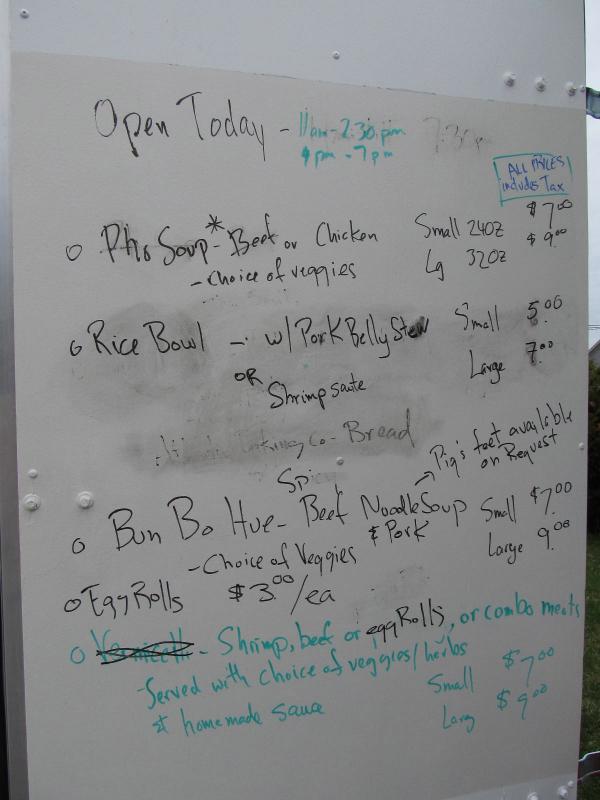 Open Today - 11am - 2:30pm
4pm - 7pm
ALL PRICES
includes Tax
o Pho Soup* - Beef or Chicken Small 24oz $7.00
- Choice of veggies Lg 32oz $9.00
o Rice Bowl - w/ Pork Belly Stew Small 5.00
OR Shrimp saute Large 7.00
Bread
Spicy
o Bun Bo Hue - Beef Noodle Soup → Pig's feet available on Request
& Pork Small $7.00
- Choice of Veggies Large 9.00
o Egg Rolls $3.00/ea
o - Shrimp, beef or egg Rolls, or combo meats
- Served with choice of veggies/herbs
& homemade sauce Small $7.00
Larg $9.00